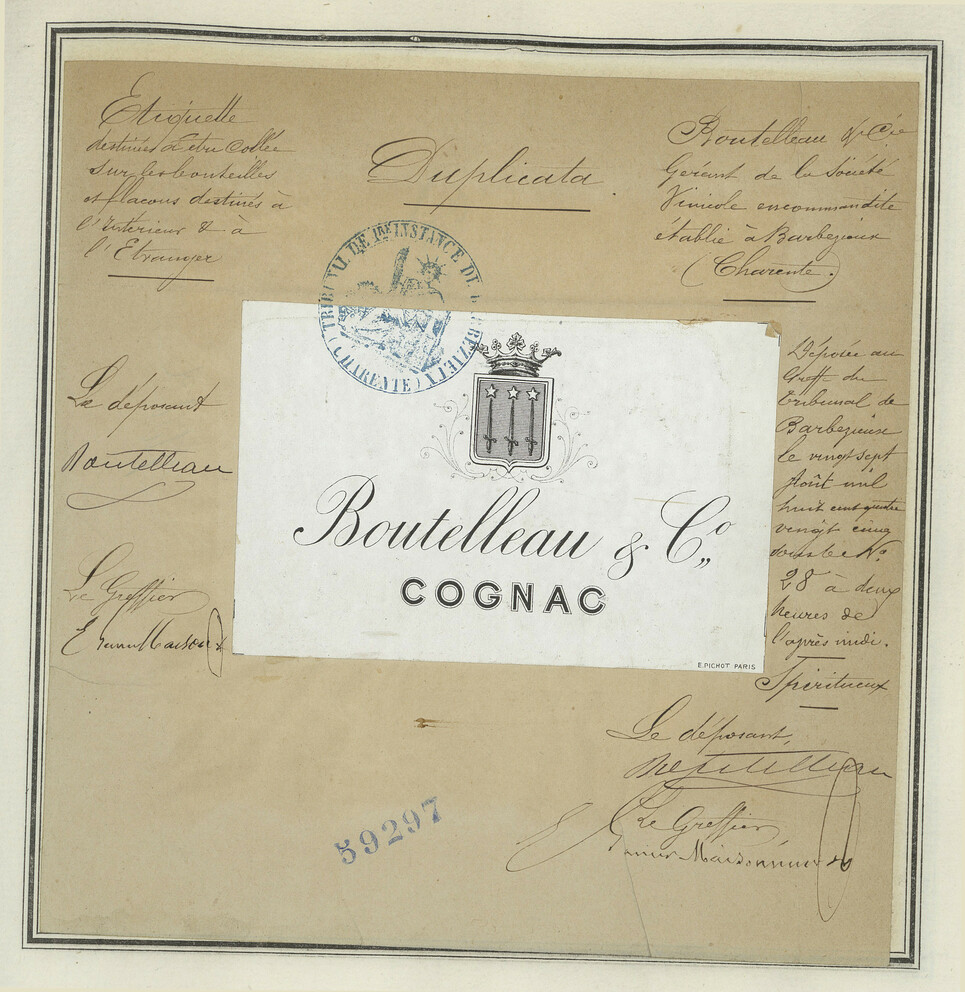 Etiquette
destinée à être Collée
sur les bouteilles
et flacons destinés à
l'Interieur & à
l'Etranger
Duplicata
Boutelleau & Cie
Gérant de la Société
Vinicole en commandite
établie à Barbezieux
(Charente.)
TRIBUNAL DE 1RE INSTANCE DE BARBEZIEUX
(CHARENTE)
Le déposant
Boutelleau
Le Greffier
Boutelleau & Co
COGNAC
E. PICHOT PARIS
Déposée au
Greffe du
Tribunal de
Barbezieux
le vingt sept
Août mil
huit cent quatre
vingt cinq
sous le No
28 à deux
heures de
l'après midi.
Spiritueux
Le déposant,
Boutelleau
Le Greffier
59297